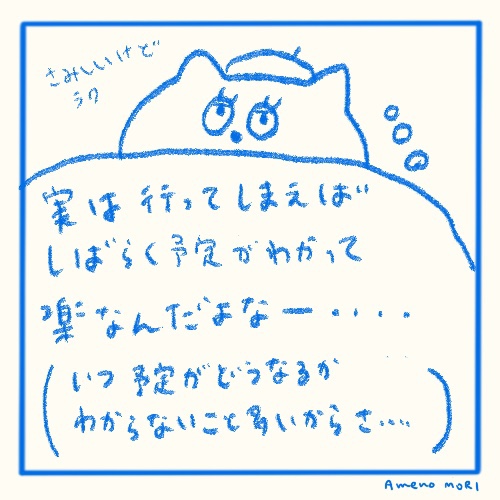 さみしいけど
ラク
実は行ってしまえば
しばらく予定がわかって
楽なんだよなー・・・・
(いつ予定がどうなるか
わからないこと多いからさ・・・・)
Ameno MORI